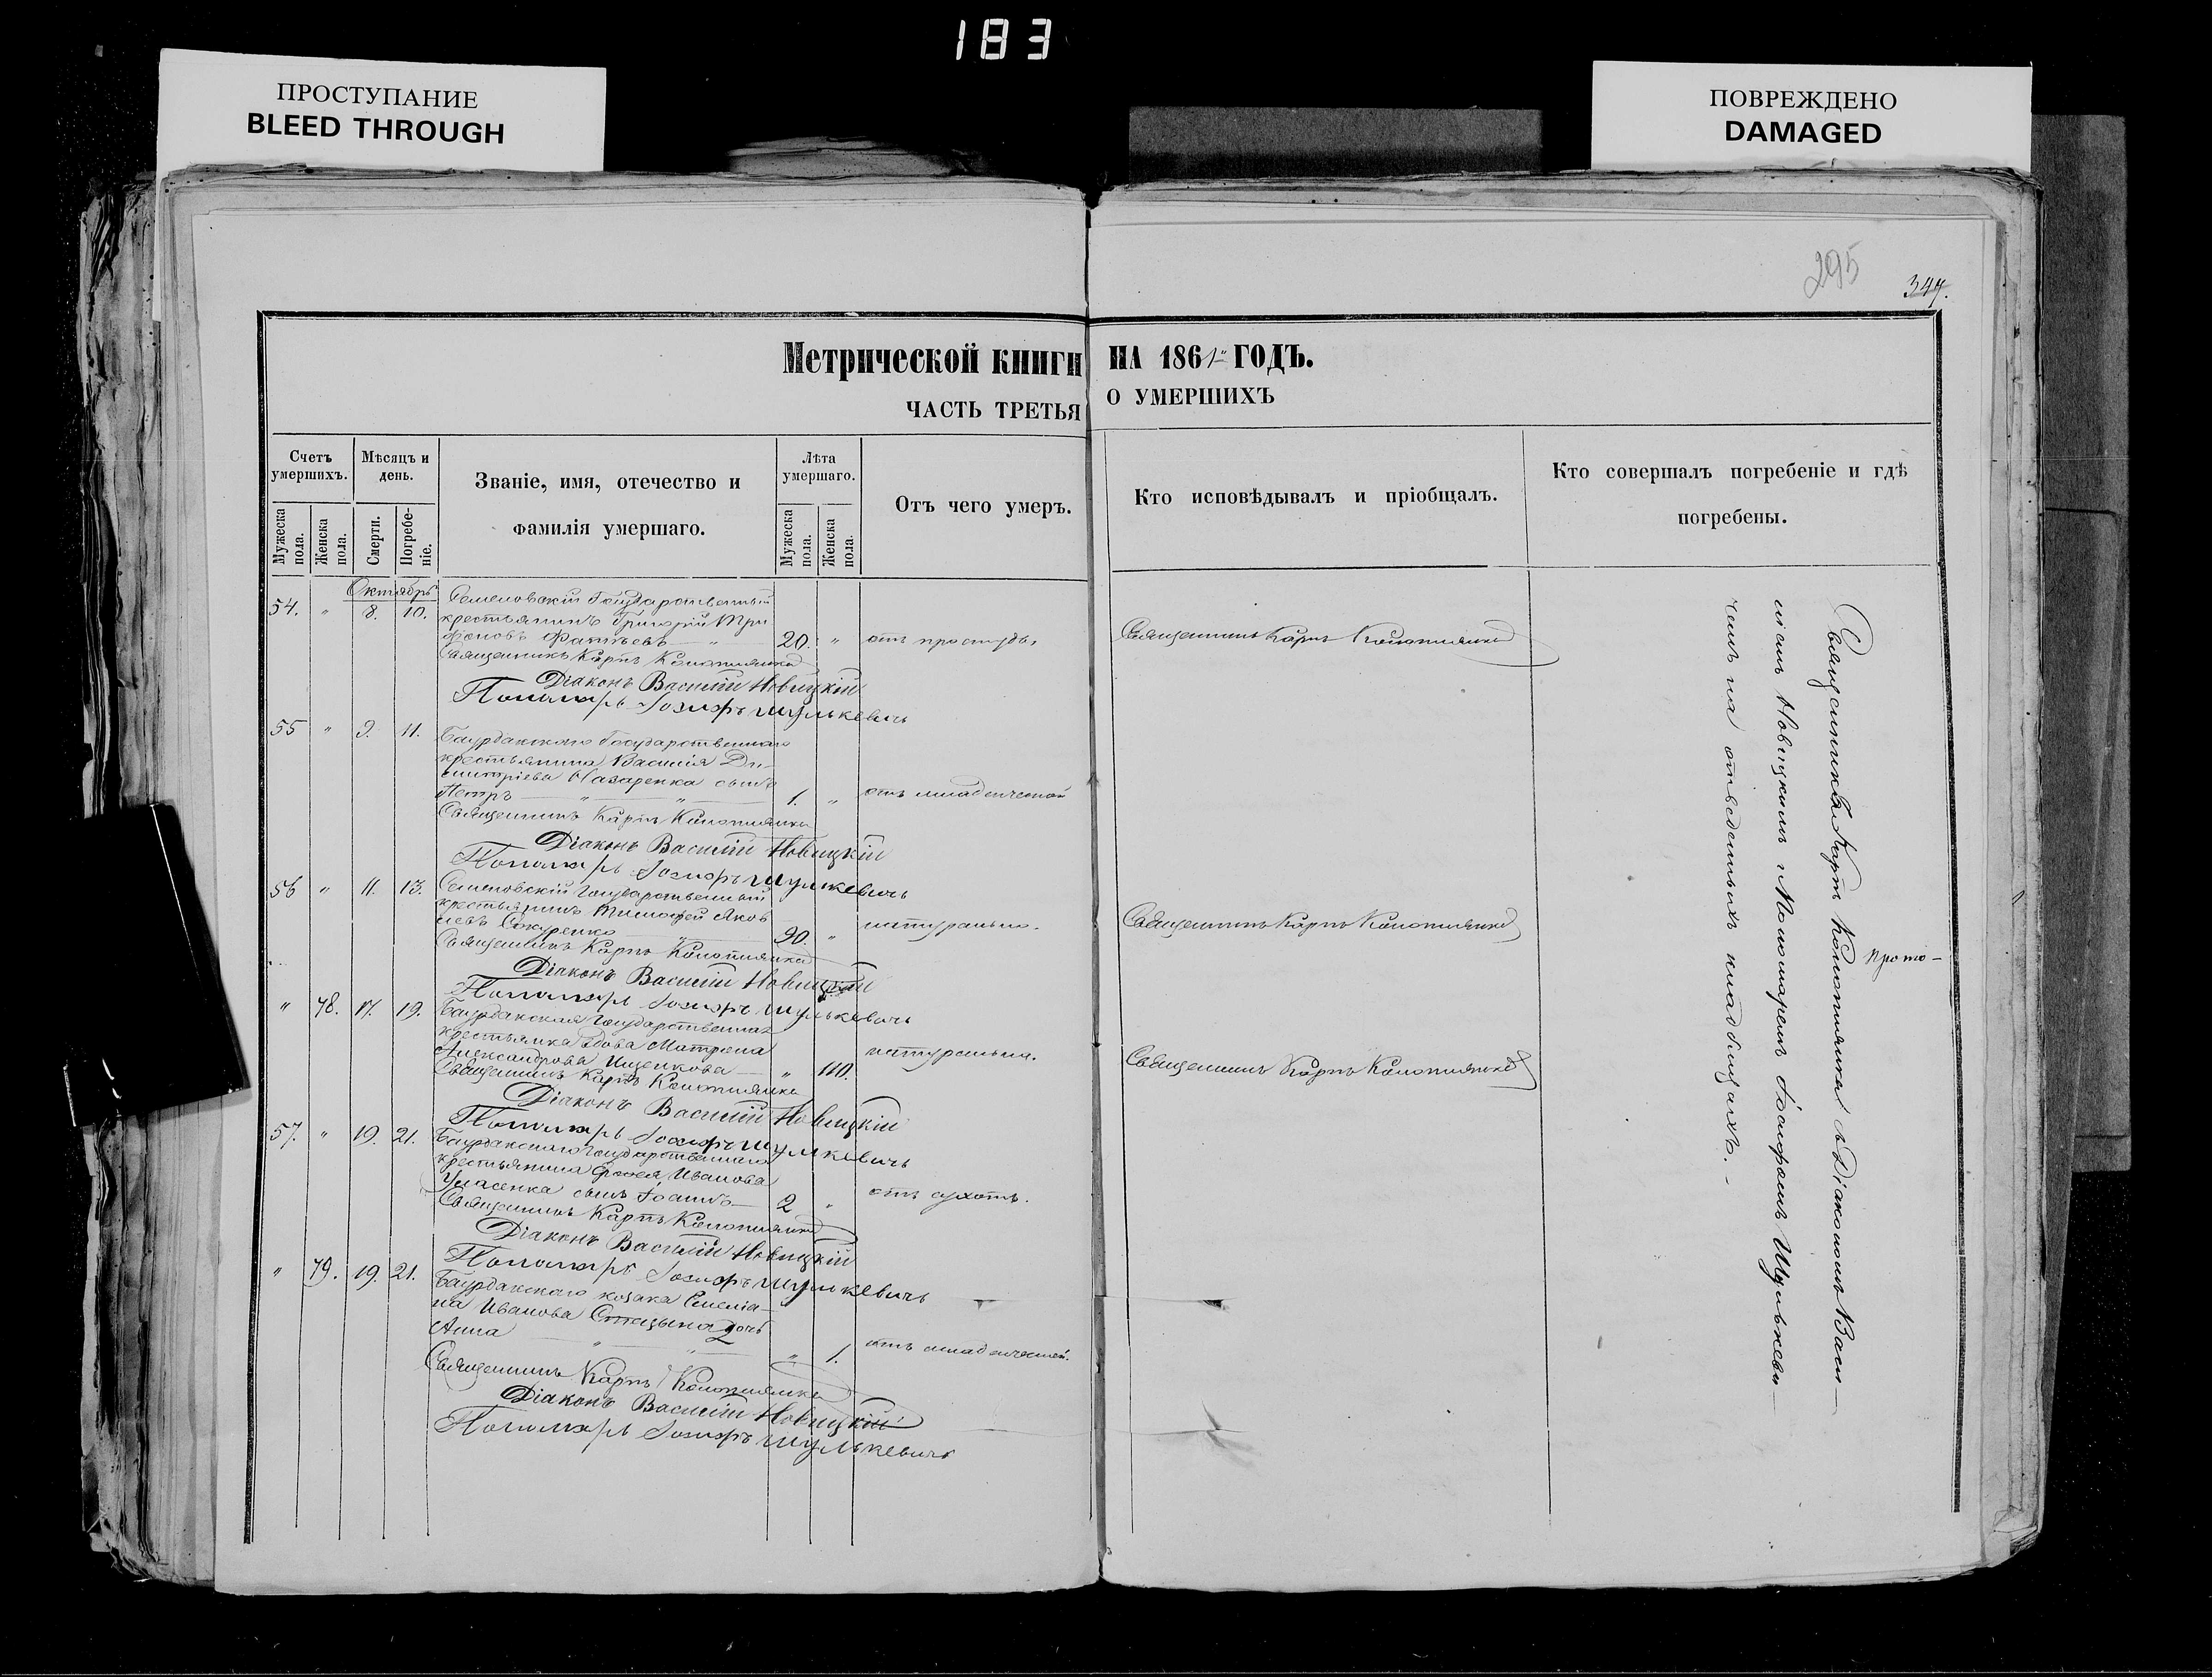 183
ПРОСТУПАНИЕ
BLEED THROUGH
ПОВРЕЖДЕНО
DAMAGED
295
347.
Метрической книги на 1861 годъ.
ЧАСТЬ ТРЕТЬЯ О УМЕРШИХЪ
Счетъ умершихъ.
Мужеска пола.
Женска пола.
Мѣсяцъ и день.
Смерти.
Погребеніе.
Званіе, имя, отечество и фамилія умершаго.
Лѣта умершаго.
Мужеска пола.
Женска пола.
Отъ чего умеръ.
Кто исповѣдывалъ и пріобщалъ.
Кто совершалъ погребеніе и гдѣ погребены.
Октябрь
54. " 8. 10. Семеновскій Государственный
крестьянинъ Григорій Три
фоновъ 20. " отъ простуды Священникъ Карпъ Колотилянка
Священникъ Карпъ Колотилянка
Діаконъ Василій Новицкій
Пономарь Іосифъ Шулькевичъ
55 " 9. 11. Баурдакскаго Государственнаго
крестьянина Василія Ди-
митріева Назаренка сынъ
Петръ 1. " отъ младенческой
Священникъ Карпъ Колотилянка
Діаконъ Василій Новицкій
Пономарь Іосифъ Шулькевичъ
56 " 11. 13. Семеновскій Государственный
крестьянинъ Тимофей Яков
левъ 90. " натурально. Священникъ Карпъ Колотилянка
Священникъ Карпъ Колотилянка
Діаконъ Василій Новицкій
Пономарь Іосифъ Шулькевичъ
" 78. 17. 19. Баурдакская Государственная
крестьянка вдова Матрона
Александрова Ищенкова " 110. натурально. Священникъ Карпъ Колотилянка
Священникъ Карпъ Колотилянка
Діаконъ Василій Новицкій
Пономарь Іосифъ Шулькевичъ
57. " 19. 21. Баурдакскаго Государственнаго
крестьянина Иванова
сынъ Іоаннъ 2 " отъ сухотъ.
Священникъ Карпъ Колотилянка
Діаконъ Василій Новицкій
Пономарь Іосифъ Шулькевичъ
" 79. 19. 21. Баурдакскаго козака Емеліа-
на Иванова дочь
Анна " 1. отъ младенческой.
Священникъ Карпъ Колотилянка
Діаконъ Василій Новицкій
Пономарь Іосифъ Шулькевичъ
Прото-
Священникъ Карпъ Колотилянка съ Діакономъ Васи-
ліемъ Новицкимъ и Пономаремъ Іосифомъ Шулькеви-
чемъ на отведенныхъ кладбищахъ.